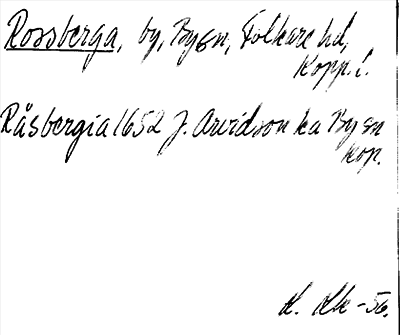 Rossberga, by, By sn, Folkare hd,
Kopp. l.
Råsbergia 1652 J. Arvidson ka By sn
Kop.
K. Rk -56.